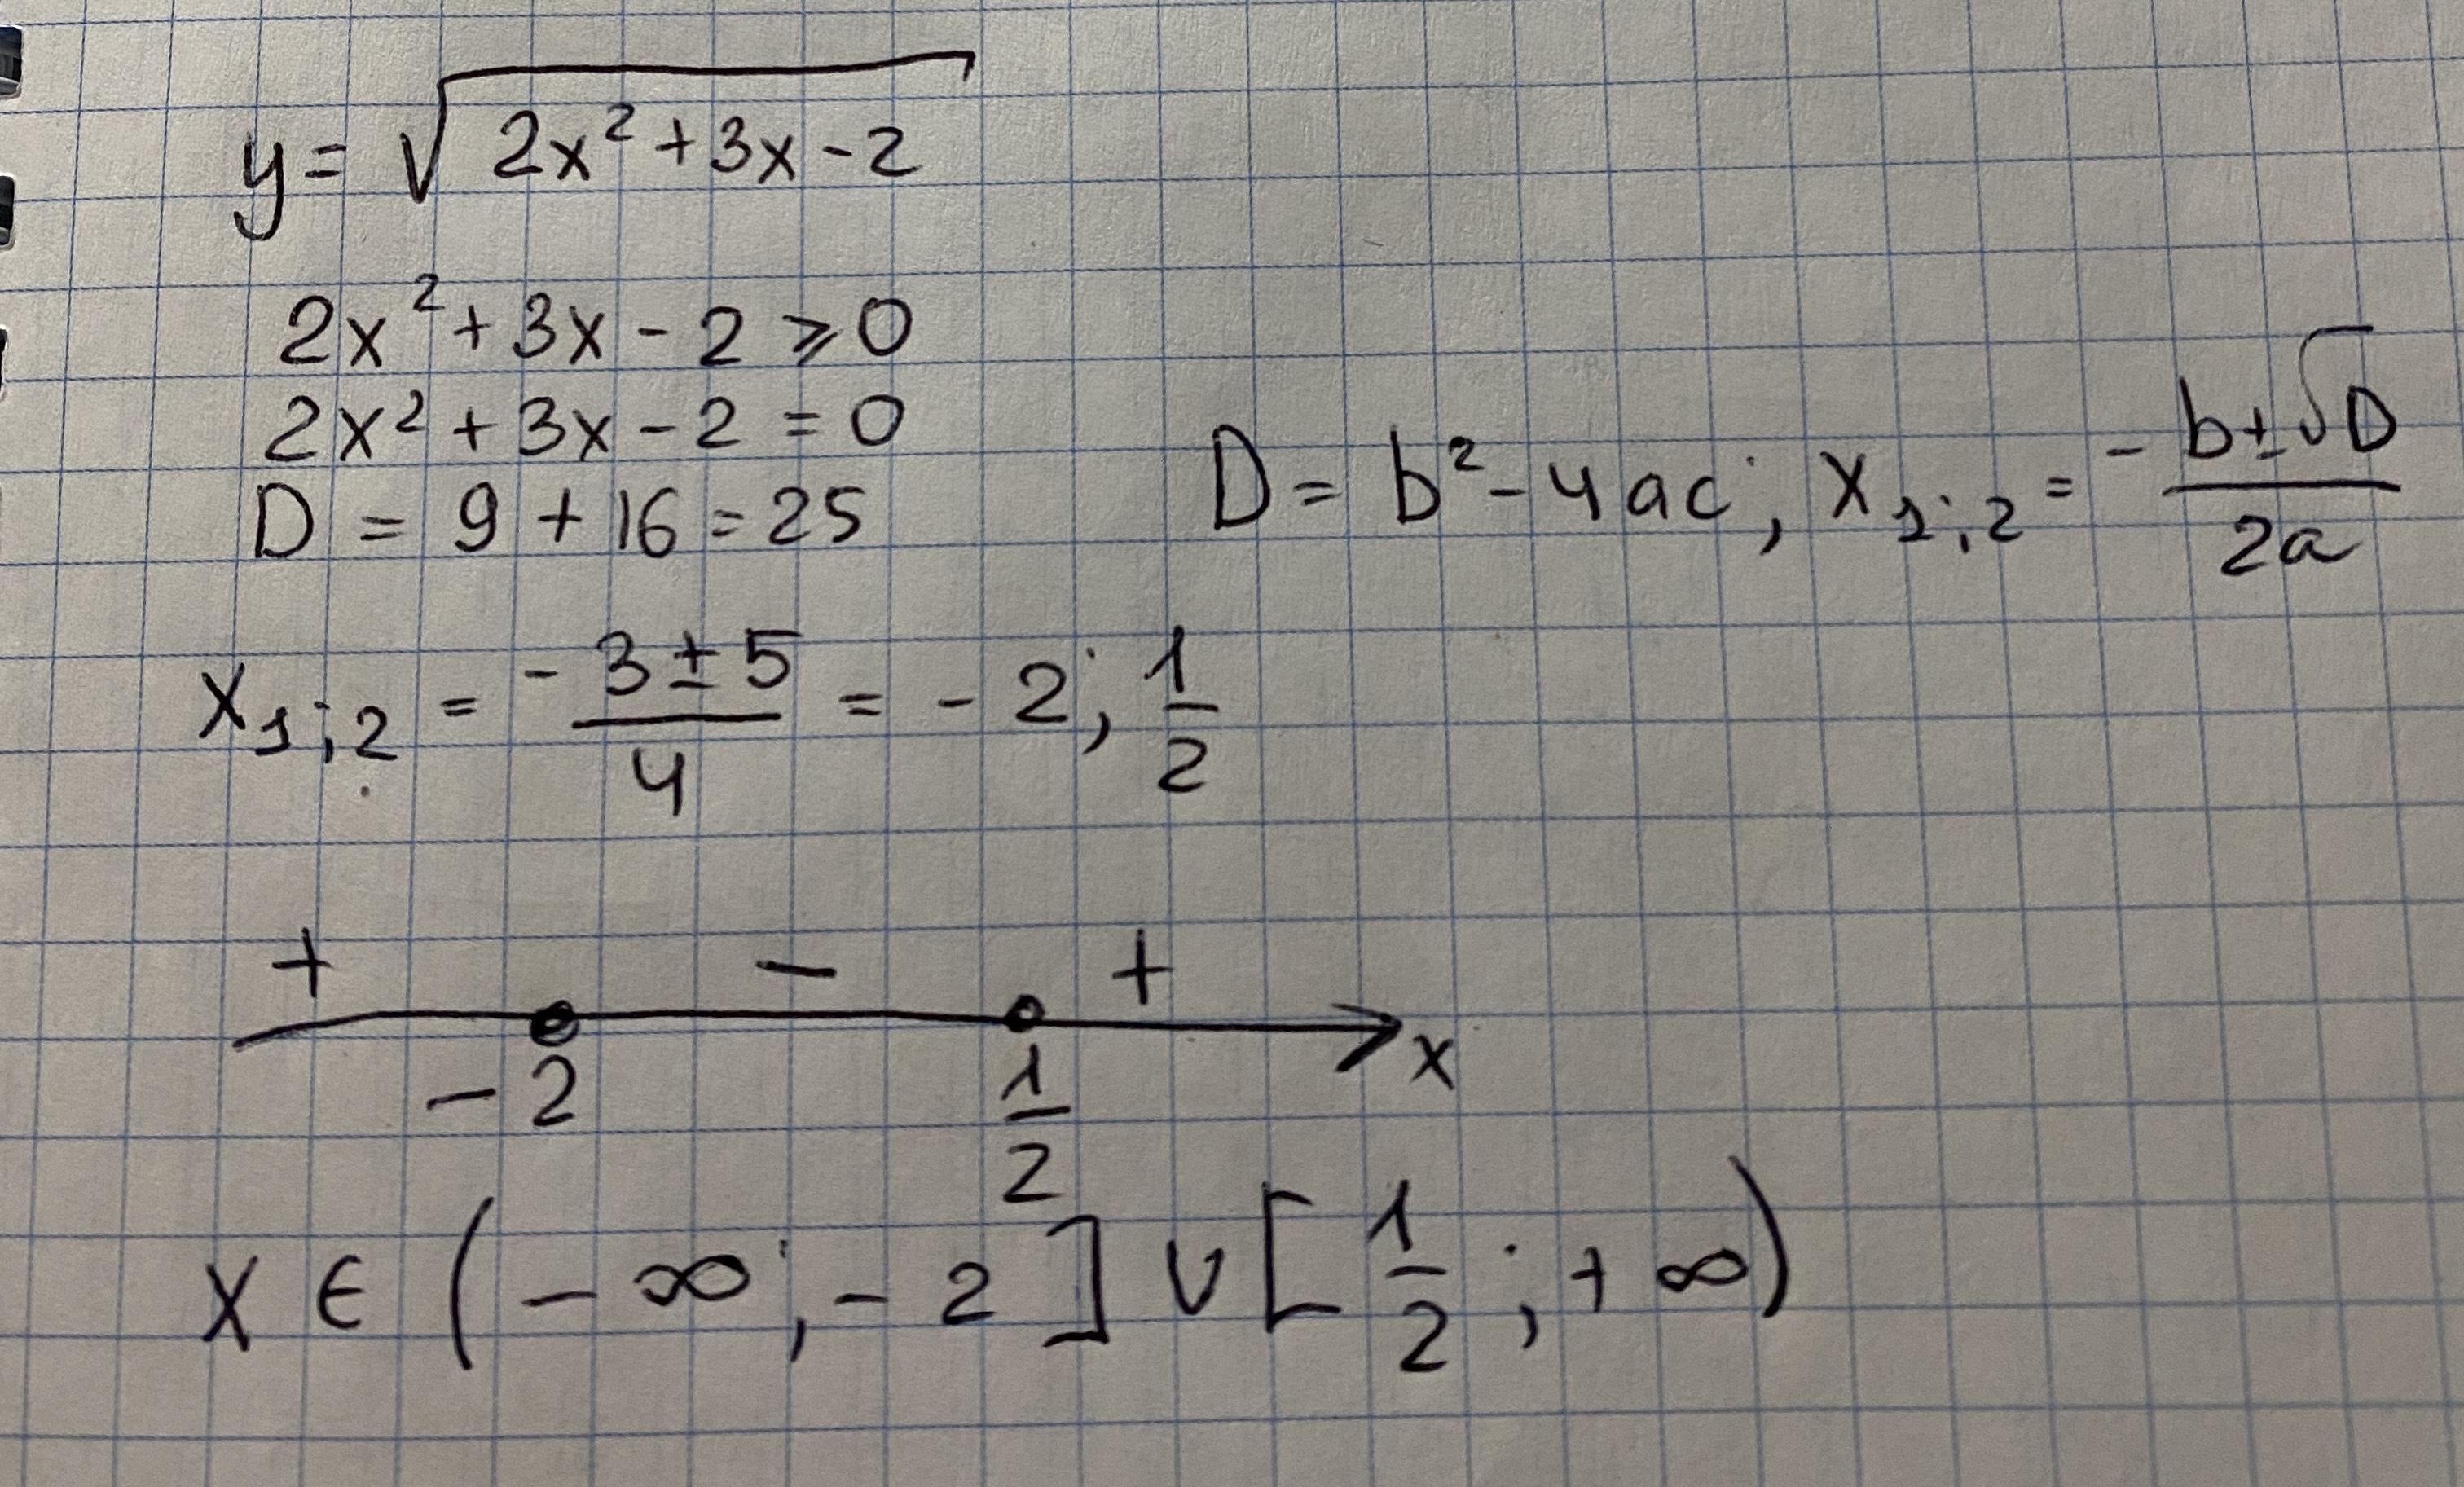 y = √(2x² + 3x - 2)
2x² + 3x - 2 ⩾ 0
2x² + 3x - 2 = 0
D = 9 + 16 = 25
D = b² - 4ac; x₁;₂ = (-b ± √D)/(2a)
x₁;₂ = (-3 ± 5)/4 = -2; 1/2
+ - +
-2 1/2 x
x ∈ (-∞; -2] ∪ [1/2; +∞)